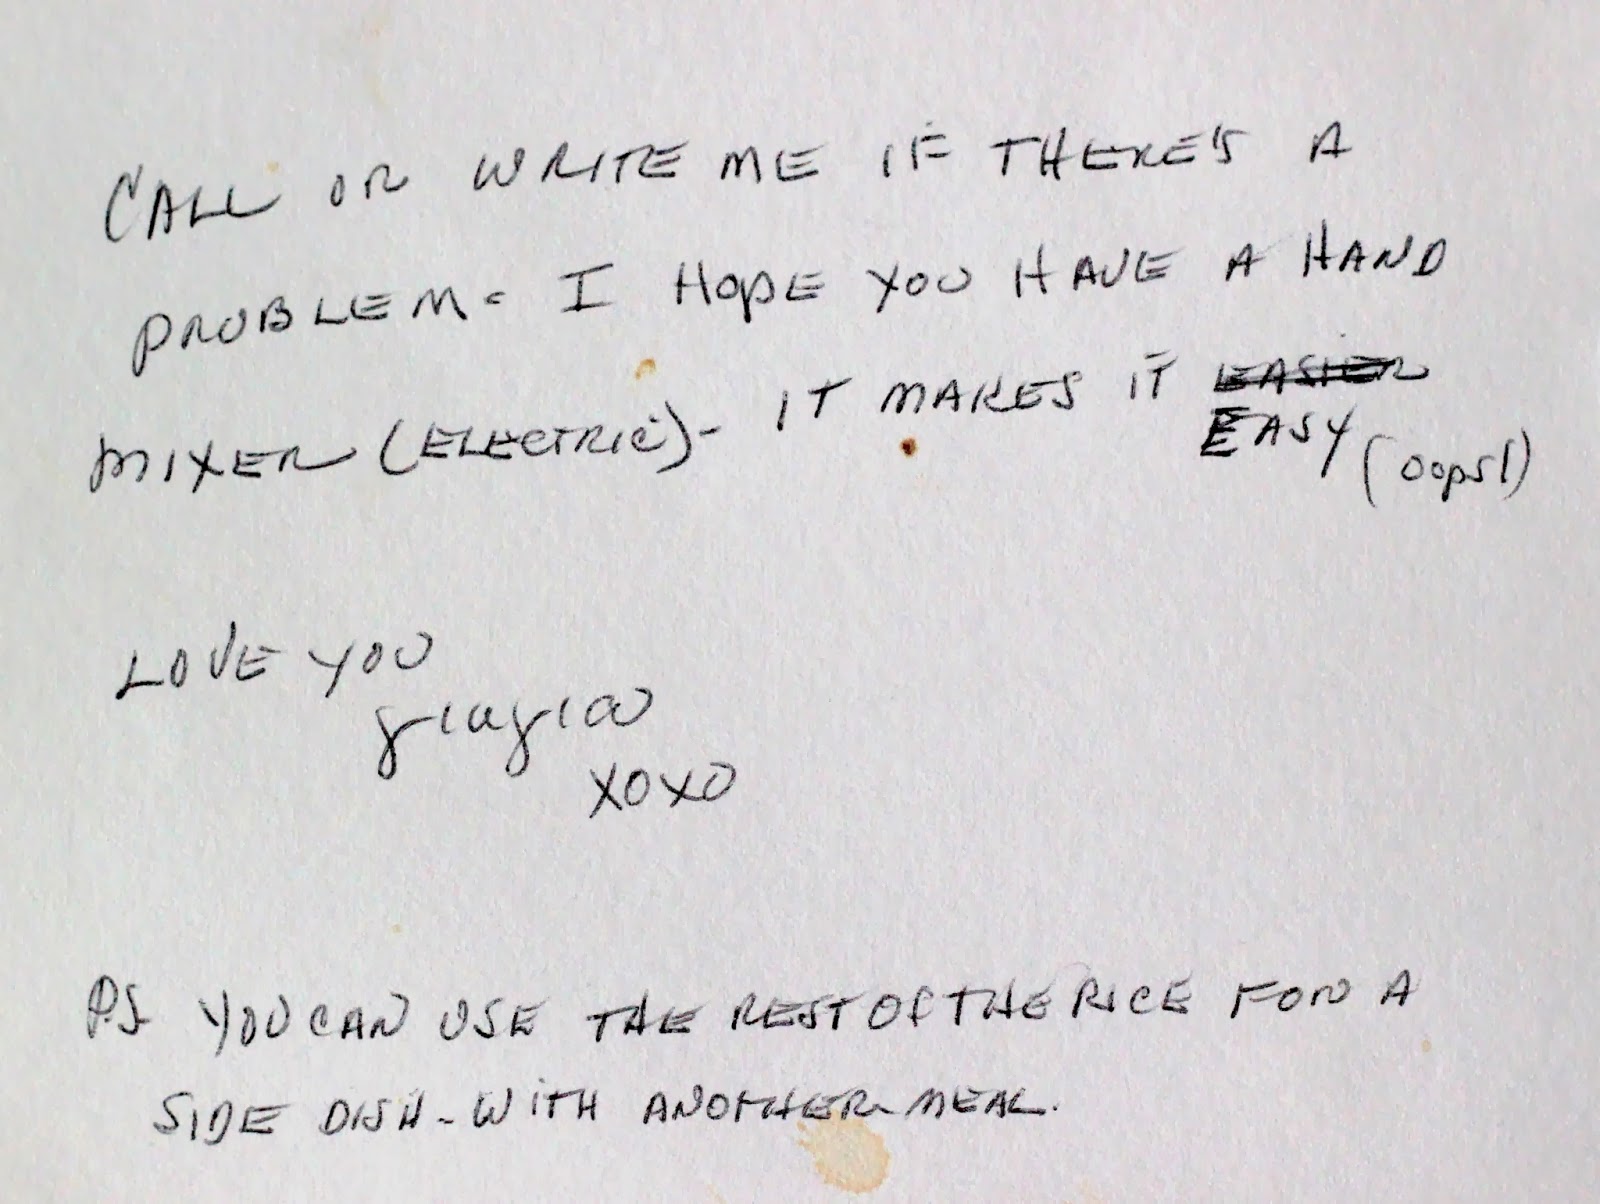 CALL OR WRITE ME IF THERE'S A
PROBLEM - I HOPE YOU HAVE A HAND
MIXER (ELECTRIC) - IT MAKES IT EASIER
EASY (oops!)
LOVE YOU
giagia
XOXO
PS YOU CAN USE THE REST OF THE RICE FOR A
SIDE DISH - WITH ANOTHER MEAL.